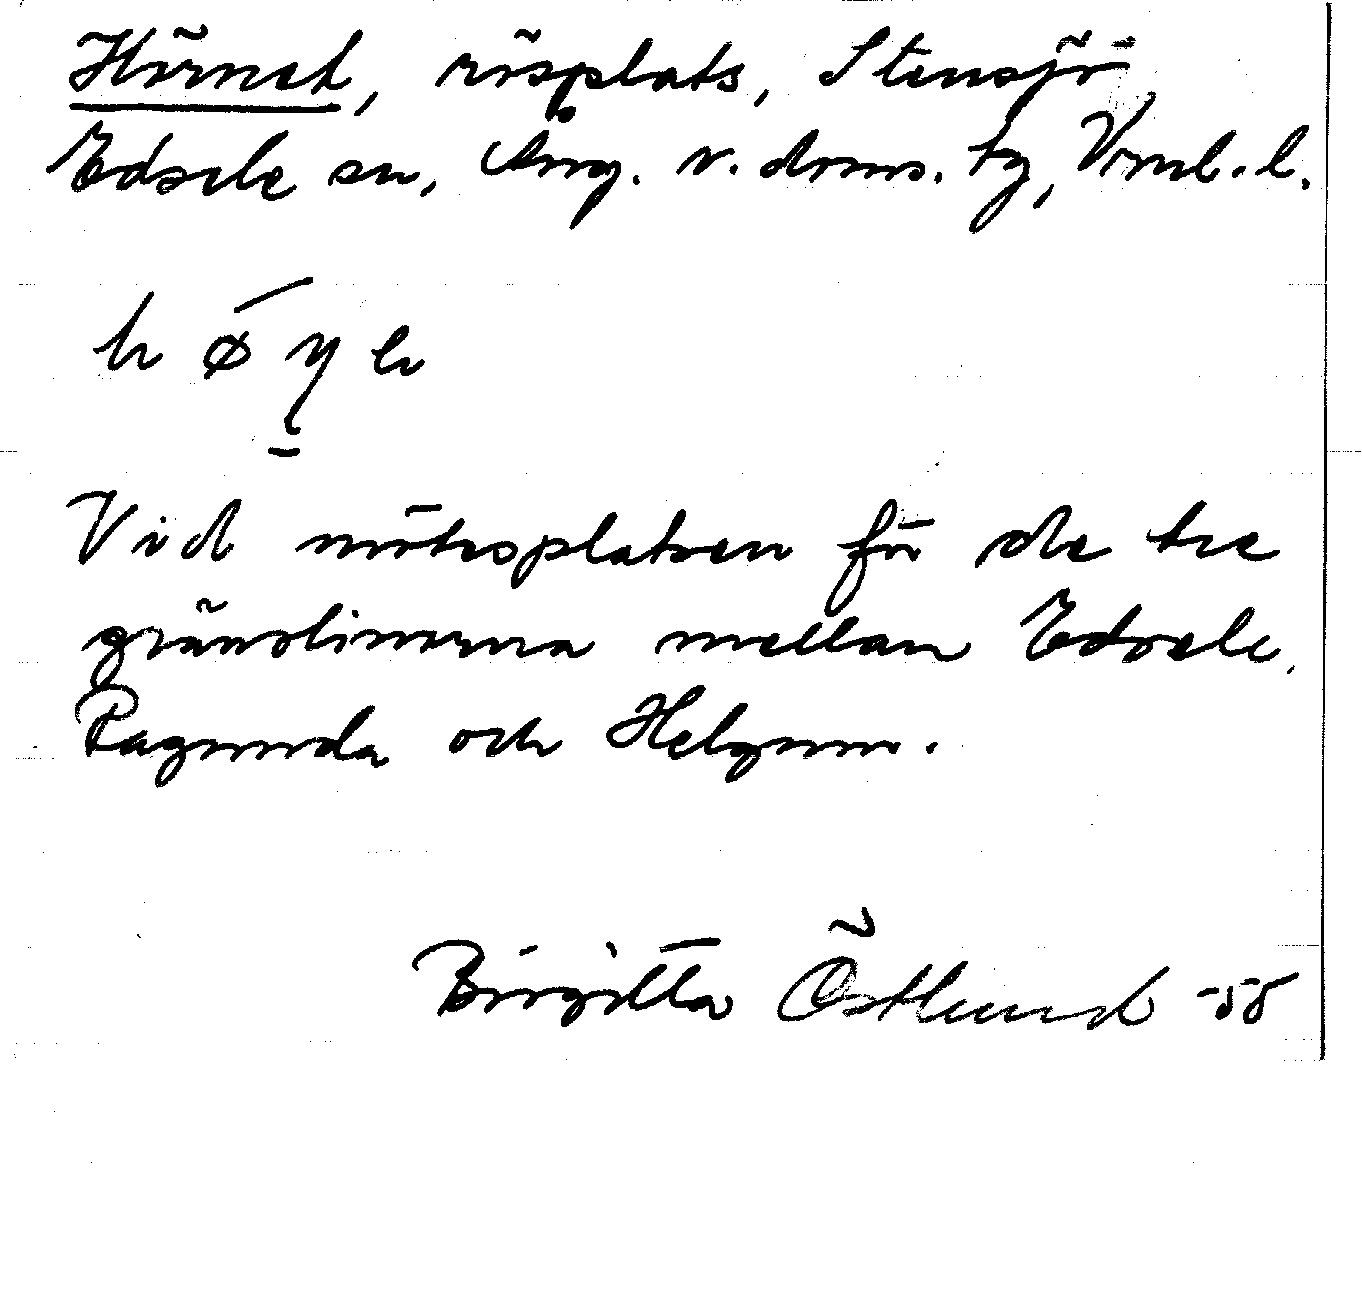 Hörnet, rösplats, Stensjö
Edsele sn, Ång. v. doms. tg, Vrnl. l.
Vid mötesplatsen för de tre
gränslinierna mellan Edsele,
Ragunda och Helgum.
Birgitta Östlund -58